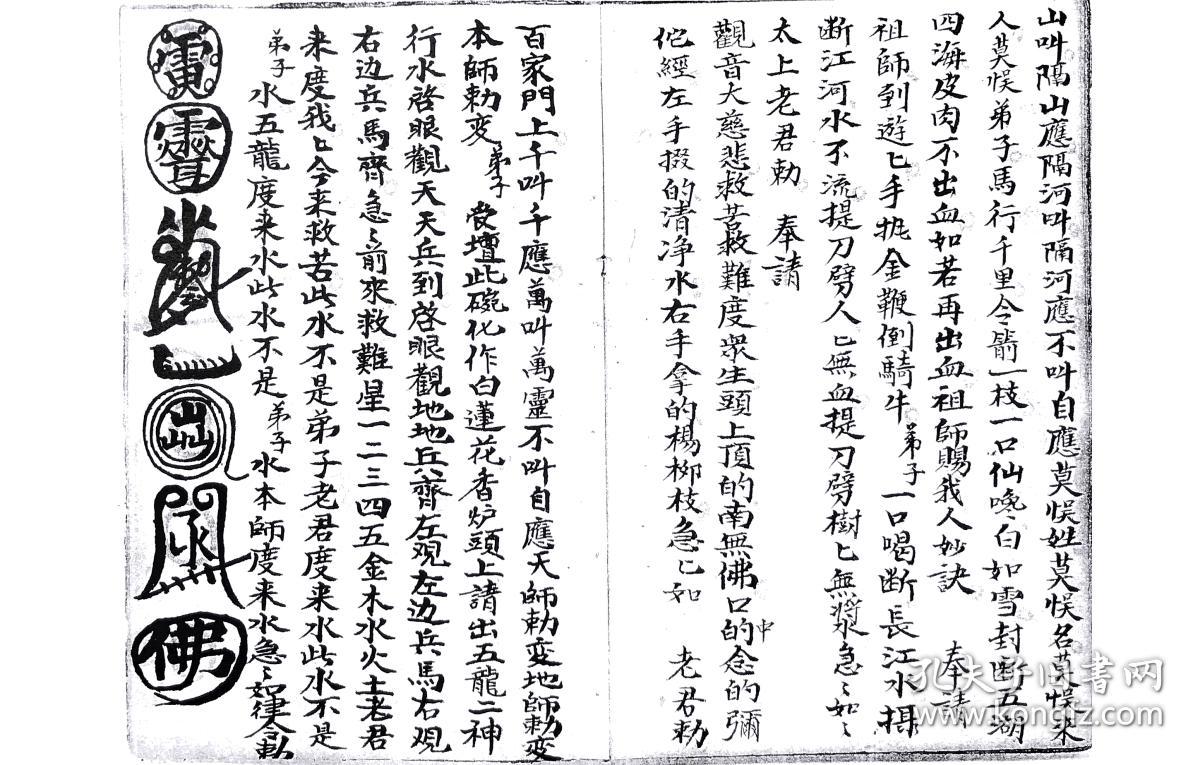 山叫隔山應隔河叫隔河應不叫自應莫悮姓莫悮名莫悮來
人莫悮弟子馬行千里令箭一枝一口仙喚白如雪封断五湖
四海皮肉不出血如若再出血祖師賜我人妙訣 奉請
祖師到遊匕手執金鞭倒騎牛弟子一口喝断長江水
断江河水不流提刀劈人匕無血提刀劈樹匕無漿急〻如〻
太上老君勅 奉請
觀音大慈悲救苦救難度衆生頭上頂的南無佛口中的念的彌
佗經左手掇的清净水右手拿的楊栁枝急匕如 老君勅
百家門上千叫千應萬叫萬靈不叫自應天師勅変地師勅変
本師勅変弟子 壇此碗化作白蓮花香炉頭上請出五龍二神
行水啓眼觀天天兵到啓眼觀地地兵齊左观左边兵馬右观
右边兵馬齊急〻前來救難星一二三四五金木水火土老君
来度我匕今来救苦此水不是弟子老君度来水此水不是
弟子水五龍度来水此水不是弟子水本師度来水急〻如律令勅
佛
孔夫子旧书网
www.kongfz.com